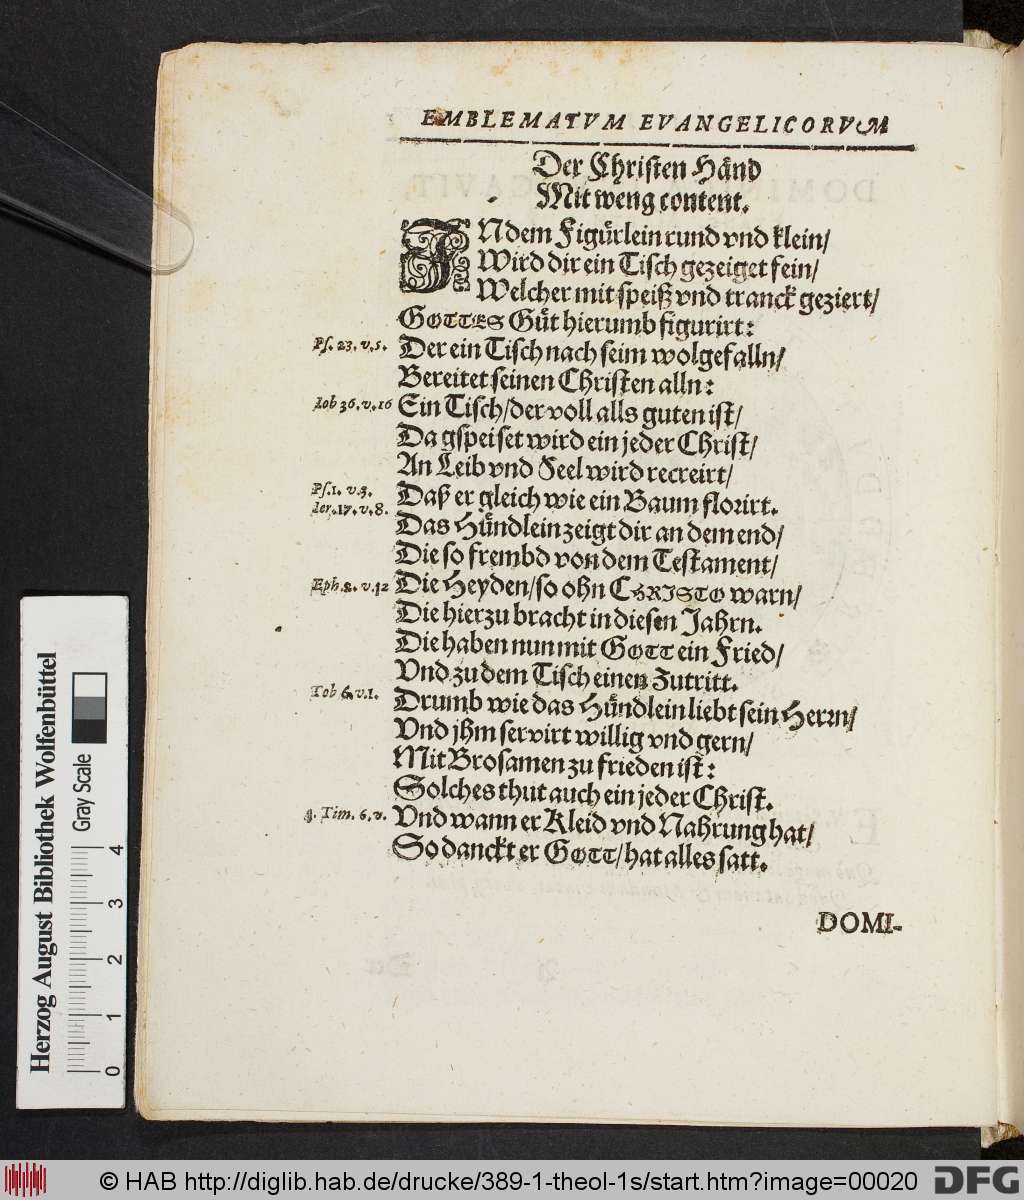 EMBLEMATVM EVANGELICORVM
Der Christen Händ
Mit weng content.
INdem Figürlein rund vnd klein/
Wird dir ein Tisch gezeiget fein/
Welcher mit speiß vnd tranck geziert/
GOTTES Güt hierumb figurirt:
Ps. 23. v. 5. Der ein Tisch nach seim wolgefalln/
Bereitet seinen Christen alln:
Iob 36. v. 16 Ein Tisch/ der voll alls guten ist/
Da gspeiset wird ein jeder Christ/
An Leib vnd Seel wird recreirt/
Ps. 1. v. 3. Daß er gleich wie ein Baum florirt.
Ier. 17. v. 8.
Das Hündlein zeigt dir an dem end/
Die so frembd von dem Testament/
Eph. 2. v. 12 Die Heyden/ so ohn CHRISTO warn/
Die hierzu bracht in diesen Jahrn.
Die haben nun mit GOTT ein Fried/
Vnd zu dem Tisch einen Zutritt.
Tob 6. v. 1. Drumb wie das Hündlein liebt sein Herrn/
Vnd jhm servirt willig vnd gern/
Mit Brosamen zu frieden ist:
Solches thut auch ein jeder Christ.
Tim. 6. v. Vnd wann er Kleid vnd Nahrung hat/
So danckt er GOTT/ hat alles satt.
DOMI-
Herzog August Bibliothek Wolfenbüttel
Gray Scale
0 1 2 3 4
© HAB http://diglib.hab.de/drucke/389-1-theol-1s/start.htm?image=00020
DFG